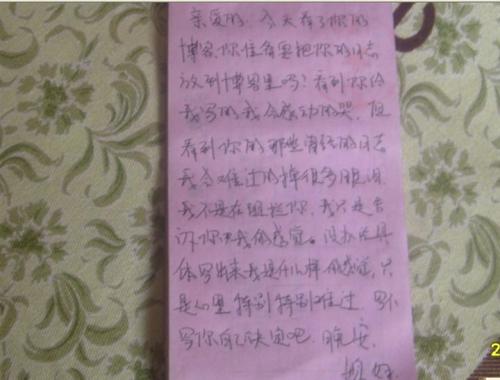 亲爱的：今天看了你的
博客，你住 要把你的日志
放到博客里吗？看到你给
我写的我会感动的哭，但
看到你的那些 的日志
我会难过的掉很多眼泪
我不是在阻拦你，我只是告
诉你我的感觉。没办法具
体写出来我是什么样的感觉，只
是心里特别特别难过，写不
写你自己决定吧。晚安。
2